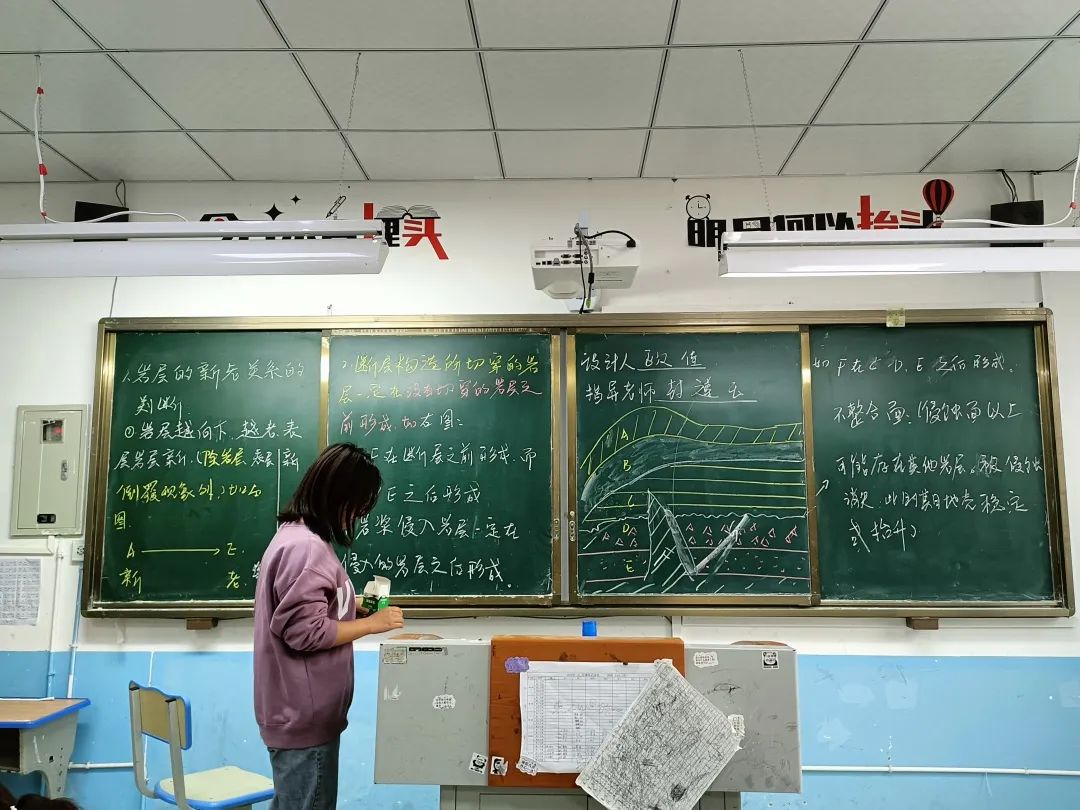 埋头
明日何以抬头
1.岩层的新老关系的
判断
①岩层越向下,越老,表
层岩层新,(除岩层
倒置现象例,)如右
图
A → E.
新 老.
2断层构造所切穿的岩
层一定在没有切穿的岩层之
前形成,如右图:
E在断层之前形成,而
E之后形成
岩浆侵入岩层一定在
侵入的岩层之后形成。
设计人
指导老师
A
B
C
D
E
如F在C、D、E之后形成。
不整合面:侵蚀面以上
可能存在其他岩层,被侵蚀
消失,此时期地壳稳定
或抬升)